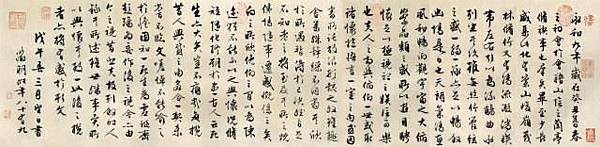 永和九年歲在癸丑暮春
之初會于會稽山陰之蘭亭
脩禊事也羣賢畢至少長
咸集此地有崇山峻領茂
林脩竹又有清流激湍暎
帶左右引以為流觴曲水
列坐其次雖無絲竹管弦
之盛一觴一詠亦足以暢敘
幽情是日也天朗氣清惠
風和暢仰觀宇宙之大俯
察品類之盛所以遊目騁
懷足以極視聽之娛信可樂
也夫人之相與俯仰一世或取
諸懷抱悟言一室之內或因
寄所託放浪形骸之外雖趣
舍萬殊靜躁不同當其欣
於所遇暫得於己快然自足
不知老之將至及其所之既
惓情隨事遷感慨係之矣
向之所欣俛仰之間以為陳
迹猶不能不以之興懷況脩
短隨化終期於盡古人云死
生亦大矣豈不痛哉每攬
昔人興感之由若合一契未
嘗不臨文嗟悼不能喻之
於懷固知一死生為虛誕齊
彭殤為妄作後之視今亦由
今之視昔悲夫故列敘時人
錄其所述雖世殊事異所
以興懷其致一也後之攬
者亦將有感於斯文
戊午春三月望日書
徵明時年八十有九